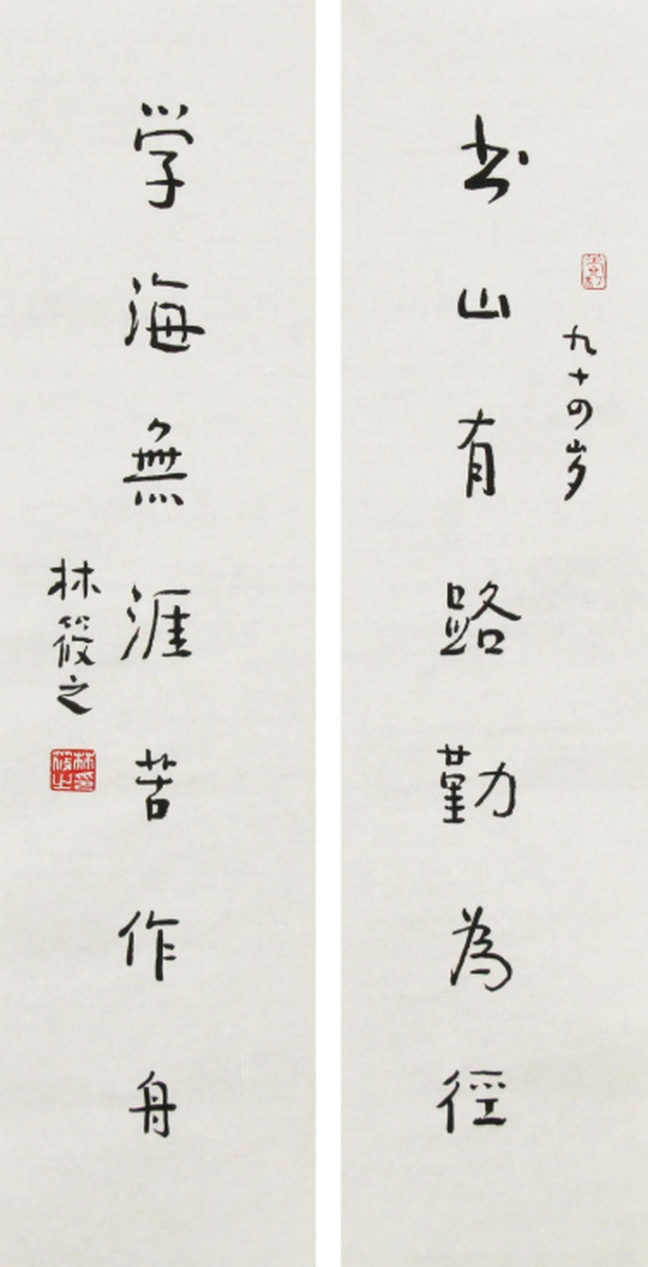 书山有路勤為徑
九十四岁
学海無涯苦作舟
林筱之